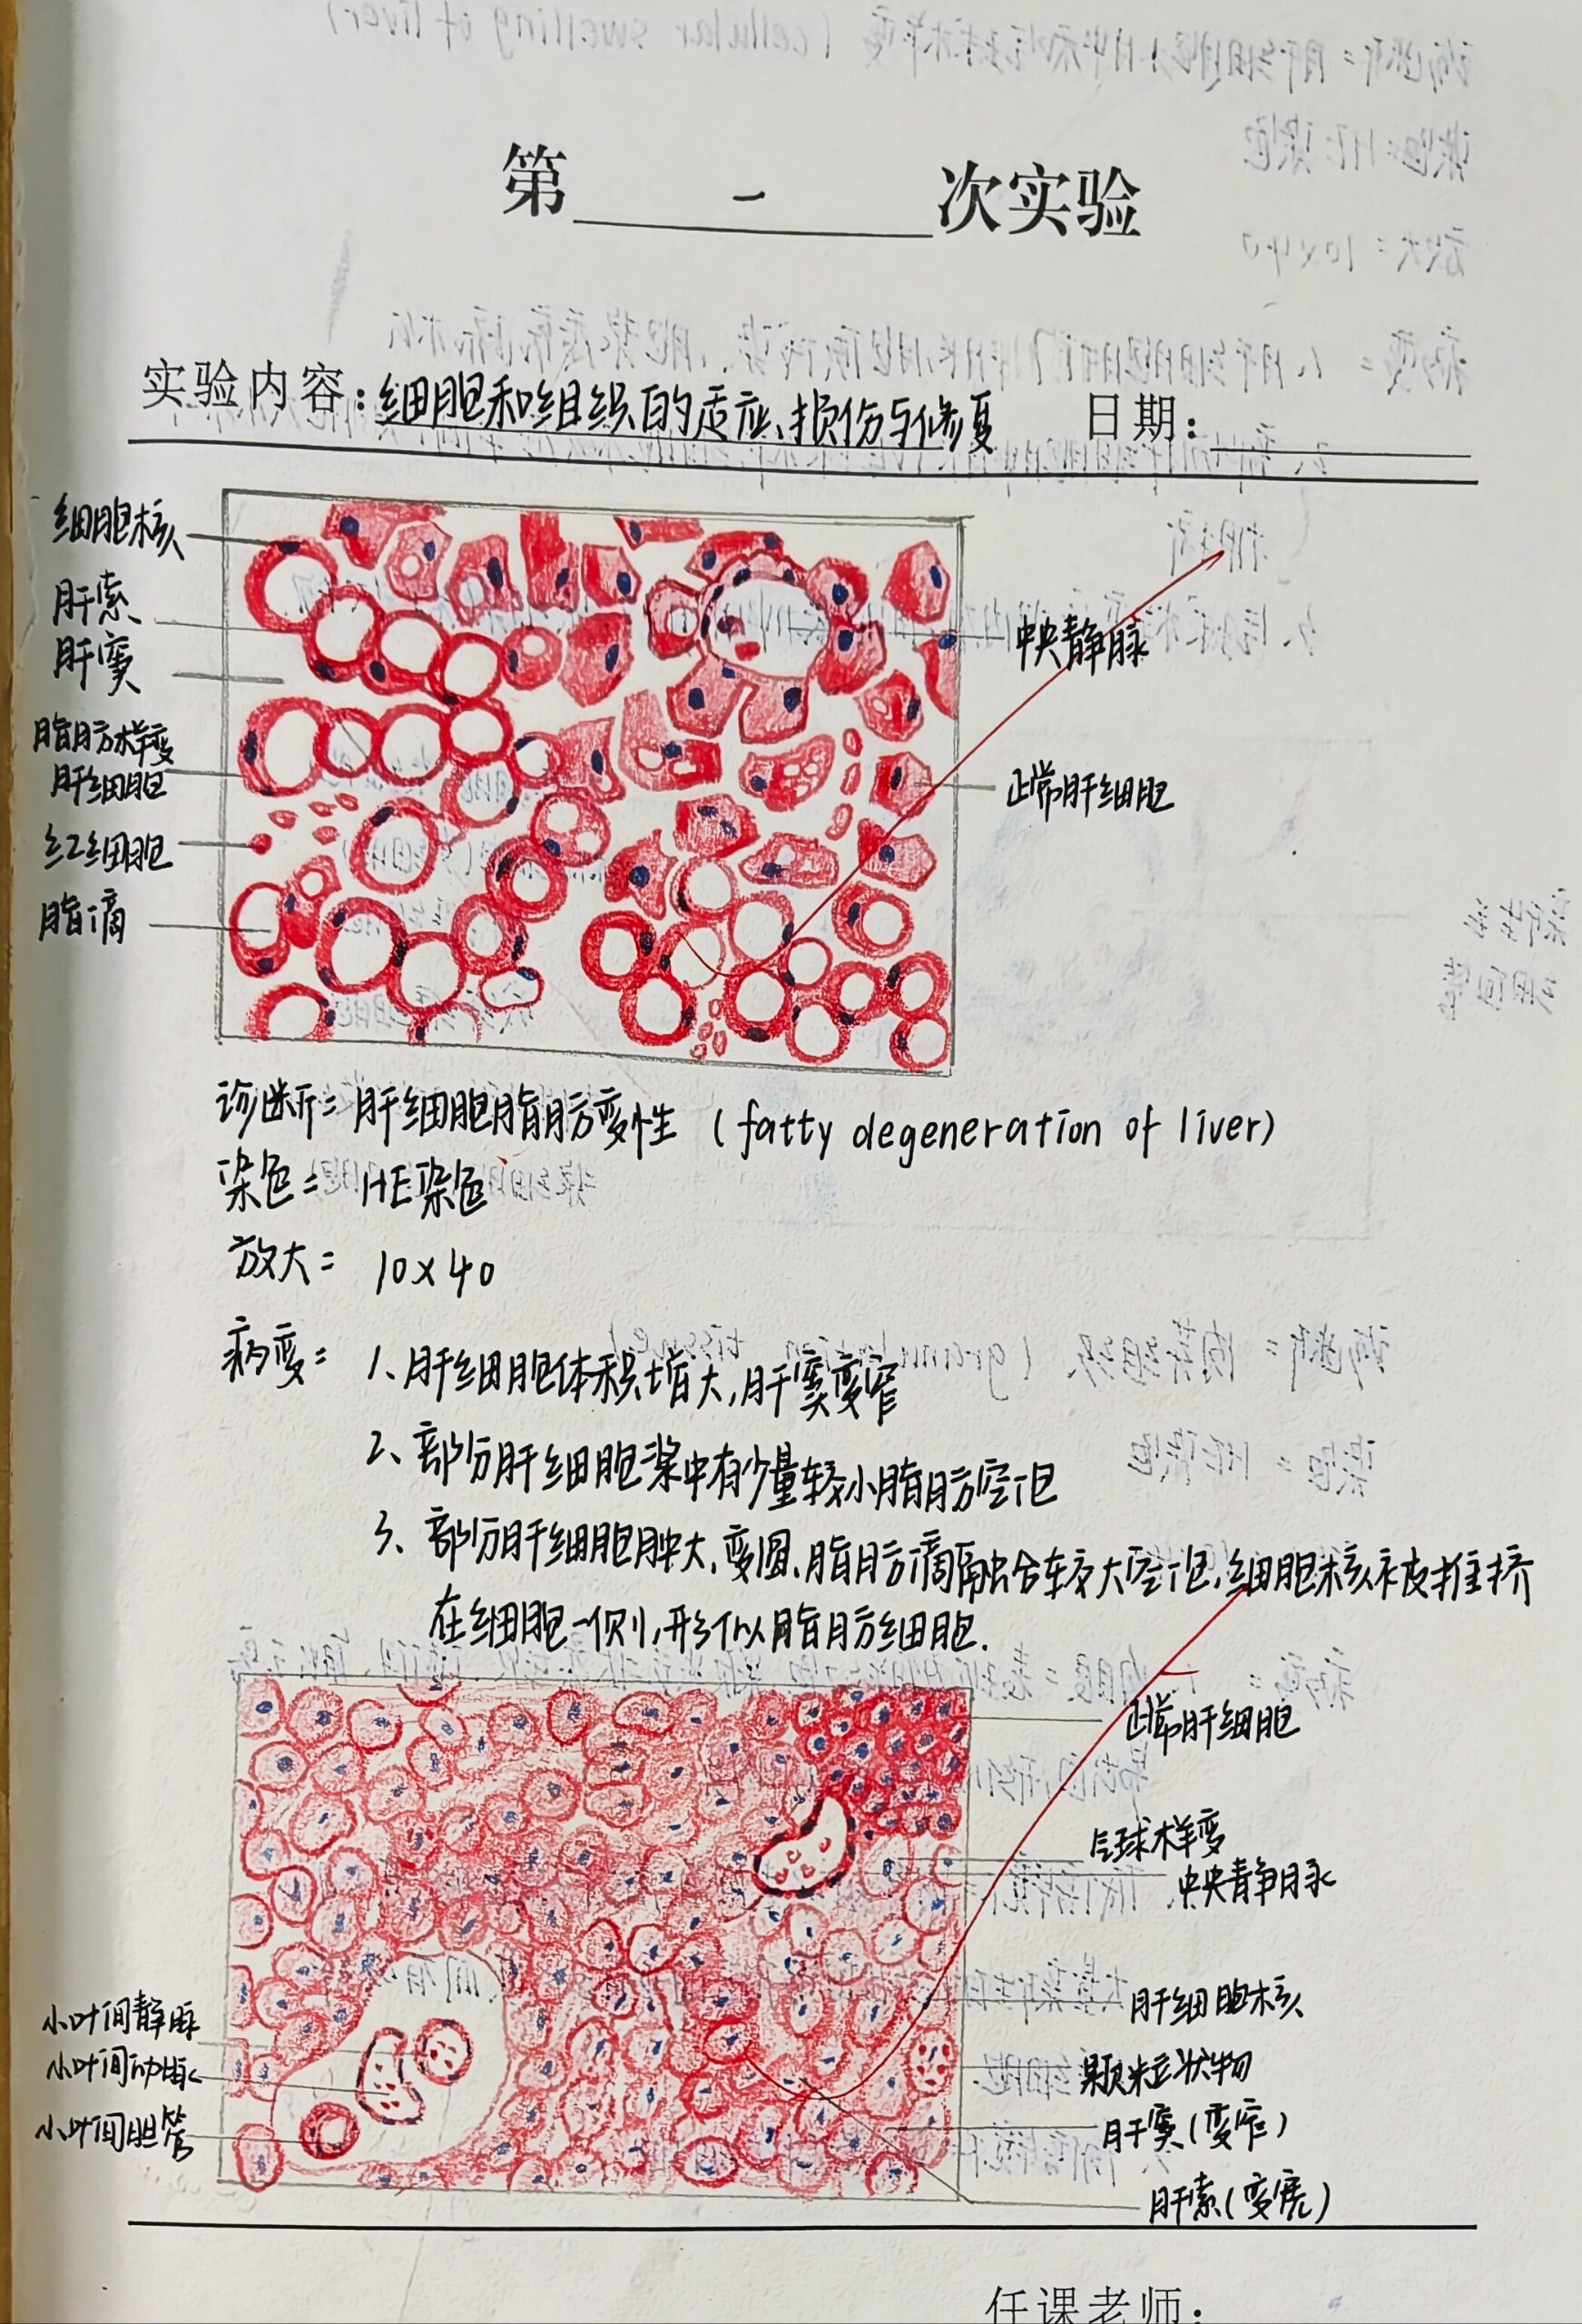 第一次实验
实验内容:细胞和组织的适应、损伤与修复 日期:
细胞核
肝索
肝窦
脂肪样变
肝细胞
红细胞
脂滴
中央静脉
正常肝细胞
诊断: 肝细胞脂肪变性 (fatty degeneration of liver)
染色: HE染色
放大: 10×40
病变: 1、肝细胞体积增大,肝窦变窄
2、部分肝细胞浆中有少量较小脂肪空泡
3、部分肝细胞肿大、变圆、脂肪滴融合较大空泡,细胞核被推挤
在细胞一侧,形似脂肪细胞.
正常肝细胞
气球样变
中央静脉
肝细胞核
颗粒状物
肝窦(变窄)
肝索(变宽)
小叶间静脉
小叶间动脉
小叶间胆管
任课老师: